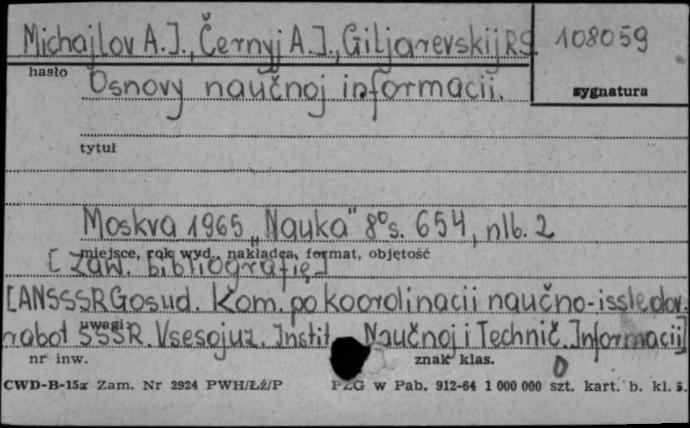 Michajlov A.J., Černyj A.J., Giljarevskij R.S. 108059
hasło
Osnovy naučnoj informacii.
sygnatura
tytuł
Moskva 1965 „Nauka" 8° s. 654, nlb. 2
miejsce, rok wyd., nakładca, format, objętość
[zaw. bibliografię]
[AN SSSR Gosud. Kom. po koordinacii naučno-issledov.
rabot SSSR. Vsesojuz. Instit. Naučnoj i Technič. Informacii]
uwagi
nr inw. znak klas.
CWD-B-15a Zam. Nr 2924 PWH/Łź/P PZG w Pab. 912-64 1 000 000 szt. kart. b. kl. 5.